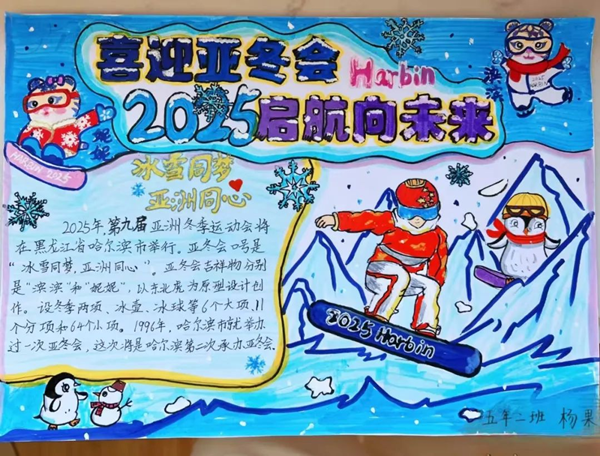 喜迎亚冬会 Harbin
2025启航向未来
滨滨
妮妮
HARBIN 2025
冰雪同梦
亚洲同心
2025年第九届亚洲冬季运动会将
在黑龙江省哈尔滨市举行。亚冬会口号是
“冰雪同梦,亚洲同心”。亚冬会吉祥物分别
是“滨滨”和“妮妮”,以东北虎为原型设计创
作。设冬季两项、冰壶、冰球等6个大项、11
个分项和64个小项。1996年,哈尔滨市就举办
过一次亚冬会,这次将是哈尔滨第二次承办亚冬会.
2025 Harbin
五年二班 杨果